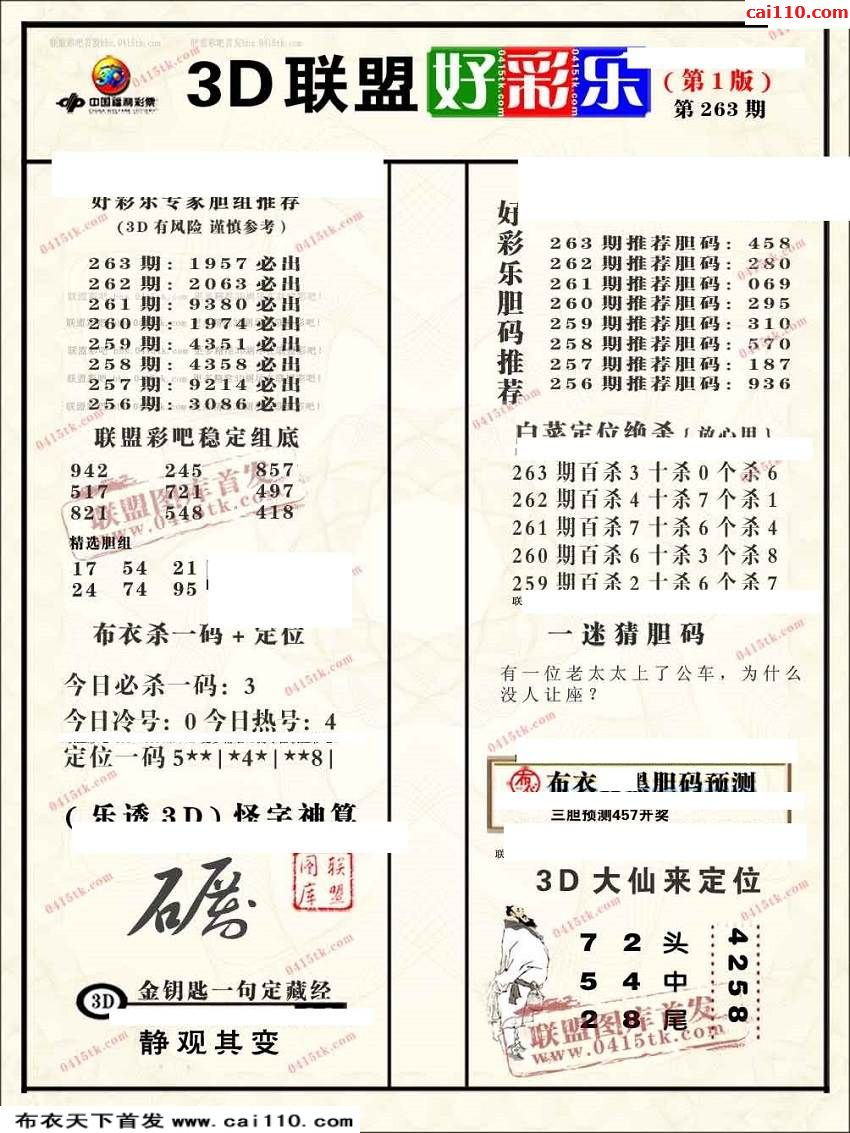 cai110.com
联盟彩吧首发bbs.0415tk.com
3D联盟好彩乐
(第1版)
第263期
中国福利彩票
CHINA WELFARE LOTTERY
好彩乐专家胆组推荐
(3D有风险 谨慎参考)
263期: 1957必出
262期: 2063必出
261期: 9380必出
260期: 1974必出
259期: 4351必出
258期: 4358必出
257期: 9214必出
256期: 3086必出
联盟彩吧稳定组底
942 245 857
517 721 497
821 548 418
精选胆组
17 54 21
24 74 95
布衣杀一码+定位
今日必杀一码: 3
今日冷号: 0 今日热号: 4
定位一码 5**|*4*|**8|
(乐透3D)怪字神算
联盟图库
3D 金钥匙一句定藏经
静观其变
好彩乐胆码推荐
263期推荐胆码: 458
262期推荐胆码: 280
261期推荐胆码: 069
260期推荐胆码: 295
259期推荐胆码: 310
258期推荐胆码: 570
257期推荐胆码: 187
256期推荐胆码: 936
白菜定位绝杀(放心用)
263期百杀3十杀0个杀6
262期百杀4十杀7个杀1
261期百杀7十杀6个杀4
260期百杀6十杀3个杀8
259期百杀2十杀6个杀7
联
一迷猜胆码
有一位老太太上了公车，为什么
没人让座？
布 布衣 胆码预测
三胆预测457开奖
联
3D大仙来定位
7 2 头
5 4 中
2 8 尾
4258
联盟图库首发
www.0415tk.com
布衣天下首发 www.cai110.com